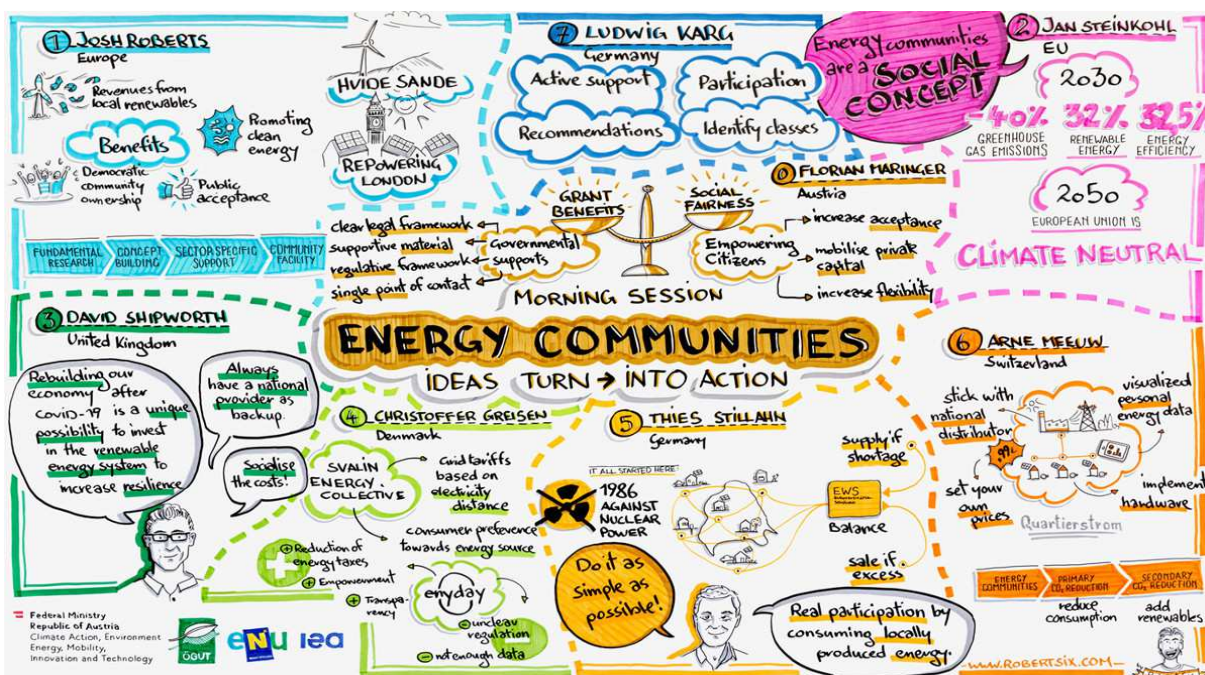 1 JOSH ROBERTS
Europe
Revenues from
local renewables
Benefits
Promoting
clean
energy
Democratic
community
ownership
Public
acceptance
HVIDE SANDE
REPOWERING
LONDON
FUNDAMENTAL
RESEARCH
CONCEPT
BUILDING
SECTOR SPECIFIC
SUPPORT
COMMUNITY
FACILITY
7 LUDWIG KARG
Germany
Active support
Participation
Recommendations
Identify classes
Energy communities
are a SOCIAL
CONCEPT
2 JAN STEINKOHL
EU
2030
-40%
GREENHOUSE
GAS EMISSIONS
32%
RENEWABLE
ENERGY
32,5%
ENERGY
EFFICIENCY
2050
EUROPEAN UNION IS
CLIMATE NEUTRAL
0 FLORIAN MARINGER
Austria
GRANT
BENEFITS
SOCIAL
FAIRNESS
clear legal framework
supportive material
regulative framework
single point of contact
Governmental
supports
Empowering
Citizens
increase acceptance
mobilise private
capital
increase flexibility
MORNING SESSION
ENERGY COMMUNITIES
IDEAS TURN → INTO ACTION
3 DAVID SHIPWORTH
United Kingdom
Rebuilding our
economy after
COVID-19 is a unique
possibility to invest
in the renewable
energy system to
increase resilience
Always
have a national
provider as
backup.
Socialise
the costs!
4 CHRISTOFFER GREISEN
Denmark
SVALIN
ENERGY
COLLECTIVE
Grid tariffs
based on
electricity
distance
consumer preference
towards energy source
+ Reduction of
energy taxes
+ Empowerment
+ Transpa-
rency
enyday
- unclear
regulation
- not enough data
5 THIES STILLAHN
Germany
IT ALL STARTED HERE
1986
AGAINST
NUCLEAR
POWER
supply if
shortage
EWS
Balance
sale if
excess
Do it as
simple as
possible!
Real participation by
consuming locally
produced energy.
6 ARNE MEEUW
Switzerland
stick with
national
distributor
visualized
personal
energy data
.99
set your
own
prices
implement
hardware
Quartierstrom
ENERGY
COMMUNITIES
PRIMARY
CO₂ REDUCTION
SECONDARY
CO₂ REDUCTION
reduce
consumption
add
renewables
Federal Ministry
Republic of Austria
Climate Action, Environment
Energy, Mobility,
Innovation and Technology
ÖGUT
eNu
iea
WWW.ROBERTSIX.COM